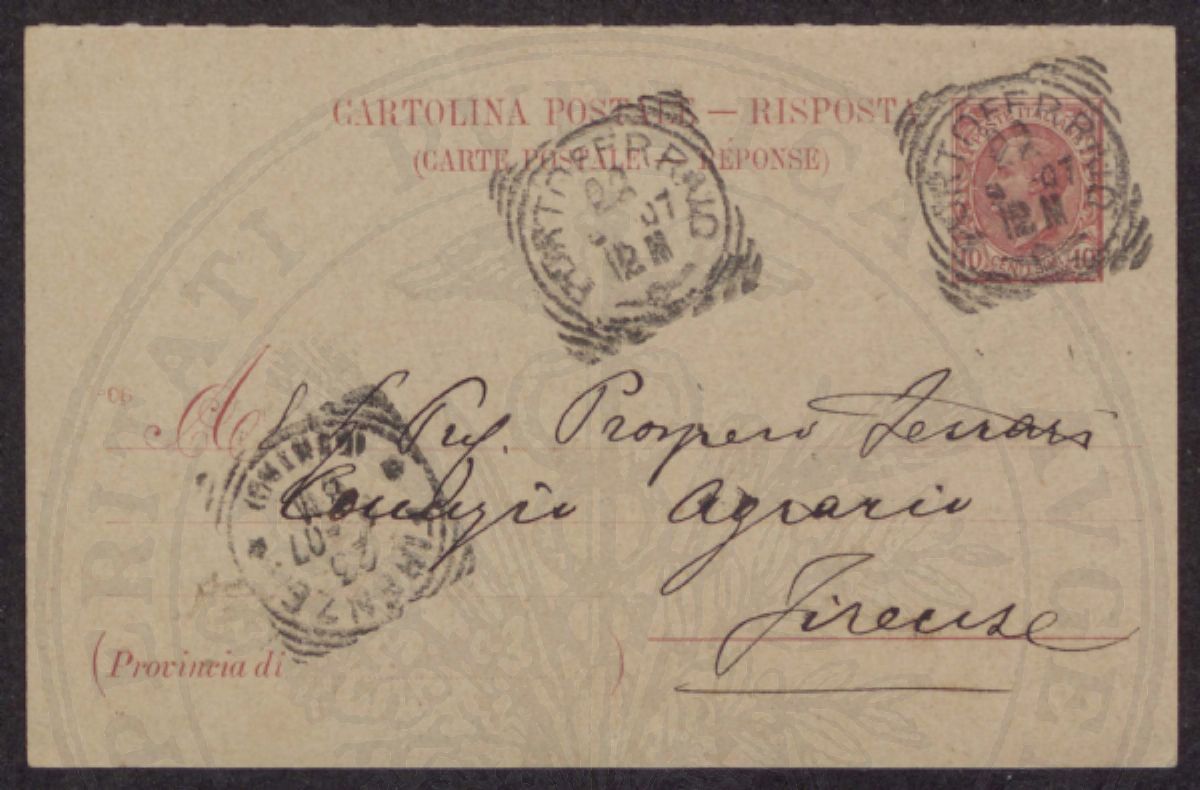 CARTOLINA POSTALE — RISPOSTA
(CARTE POSTALE — RÉPONSE)
POSTE ITALIANE
10 CENT. 10
PORTOFERRAIO
07
12 M
PORTOFERRAIO
07
12 M
-06
A S. S. Prof. Prospero Ferrari
Agrario
Firenze
FIRENZE
07
(Provincia di )